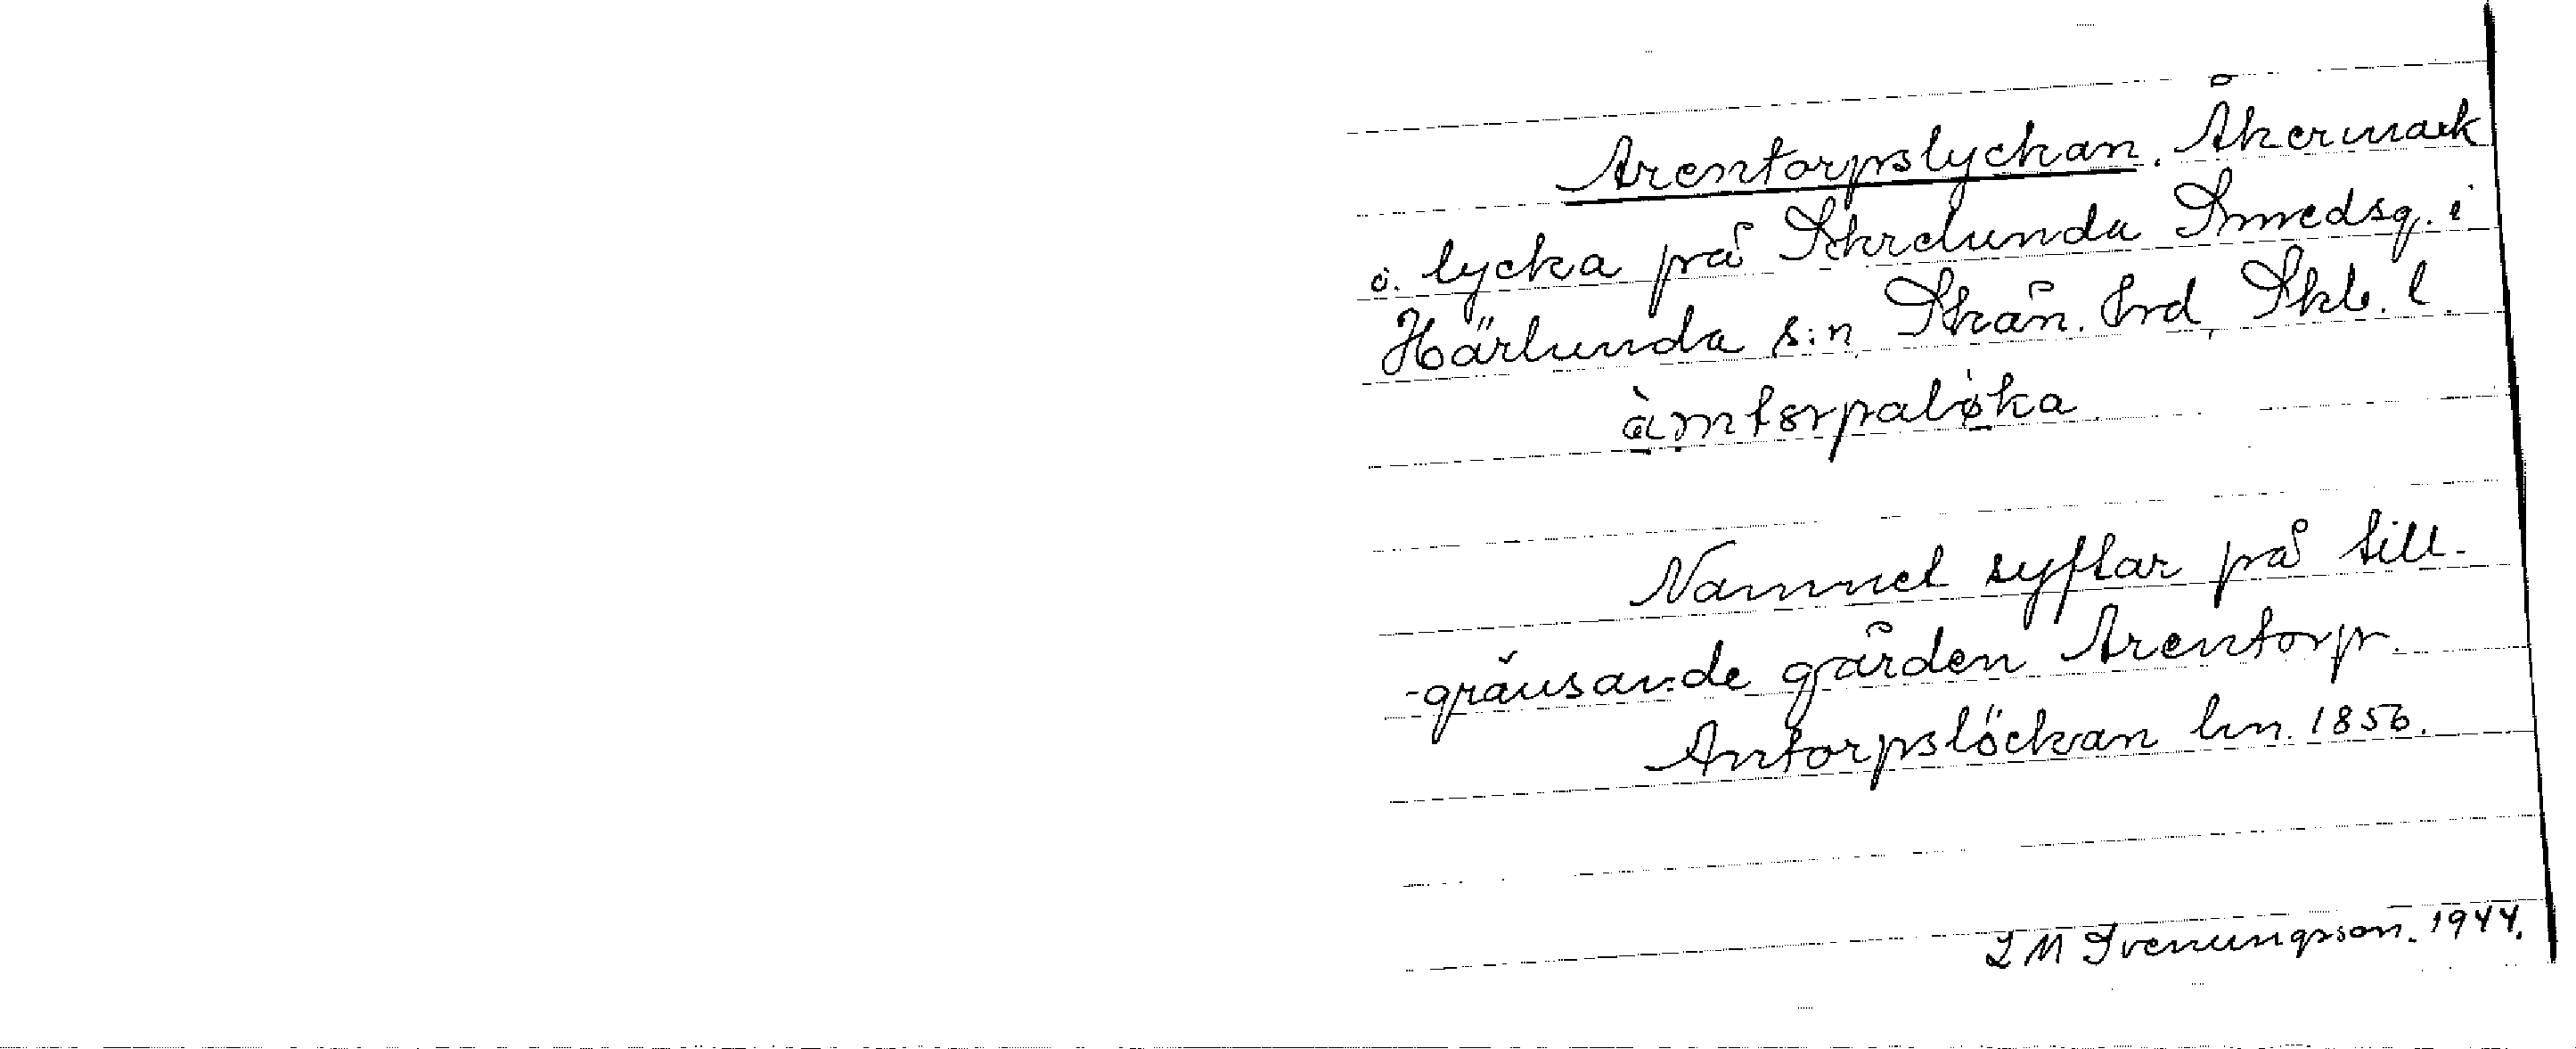 Arentorpslyckan. Åkermark
o. lycka på Skrelunda Smedsg. i
Härlunda s:n, Skån. hrd, Skb. l.
àrntorpaløka
Namnet syftar på till-
-gränsande gården Arentorp.
Antorpslöckan lm. 1856.
L M Svenungsson. 1944.